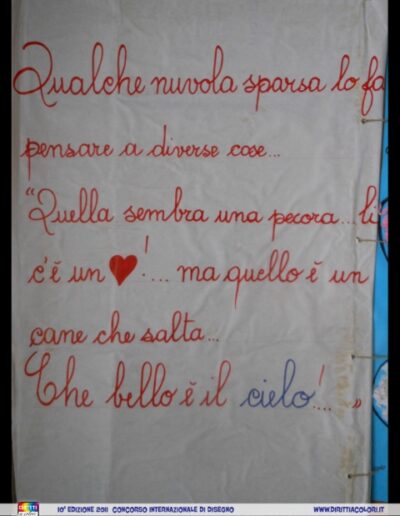 Qualche nuvola sparsa lo fa
pensare a diverse cose...
“Quella sembra una pecora...lì
c'è un ♥!... ma quello è un
cane che salta...
Che bello è il cielo!... »
10ª EDIZIONE 2011 CONCORSO INTERNAZIONALE DI DISEGNO
WWW.DIRITTIACOLORI.IT